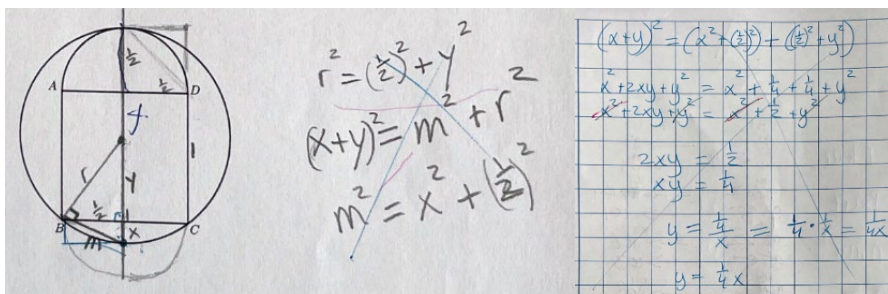 1/2
1/2
A
D
y
r
Y
1
1/2
B
x
C
m
r² = (1/2)² + y²
(x+y)² = m² + r²
m² = x² + (1/2)²
(x+y)² = (x² + (1/2)²) + ((1/2)² + y²)
x² + 2xy + y² = x² + 1/4 + 1/4 + y²
x² + 2xy + y² = x² + 1/2 + y²
2xy = 1/2
xy = 1/4
y = 1/4/x = 1/4 · 1/x = 1/4x
y = 1/4 x